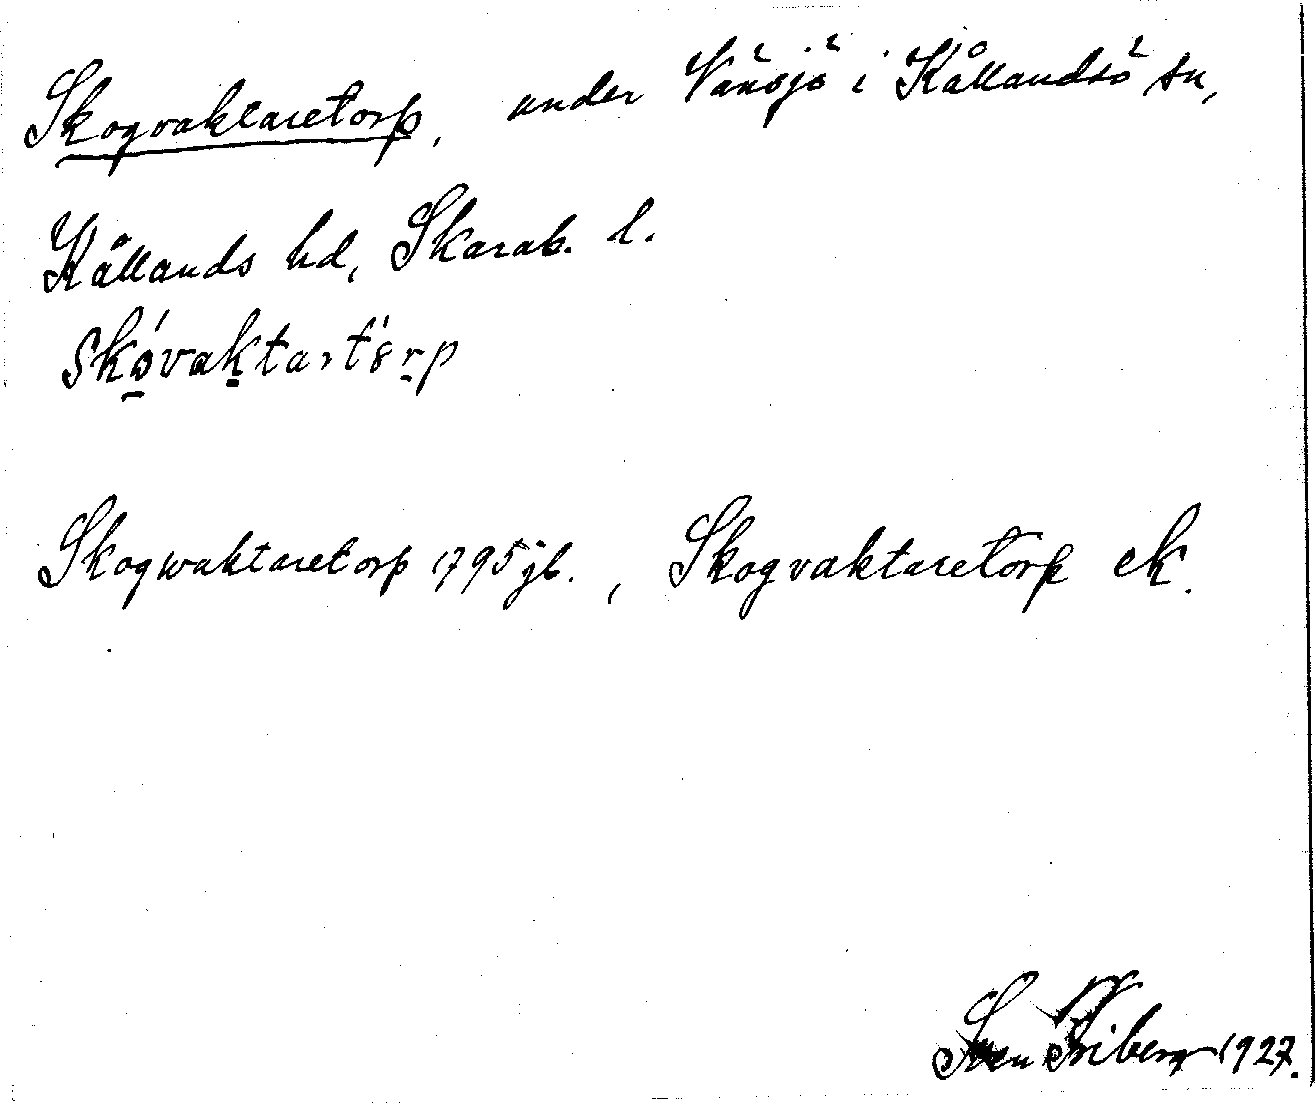 Skogvaktaretorp, under Vänsjö i Kållandsö sn,
Kållands hd, Skarab. l.
skóvaktart'ɞrp
Skogwaktaretorp 1795 jb., Skogvaktaretorp ek.
Sven Friberg 1927.